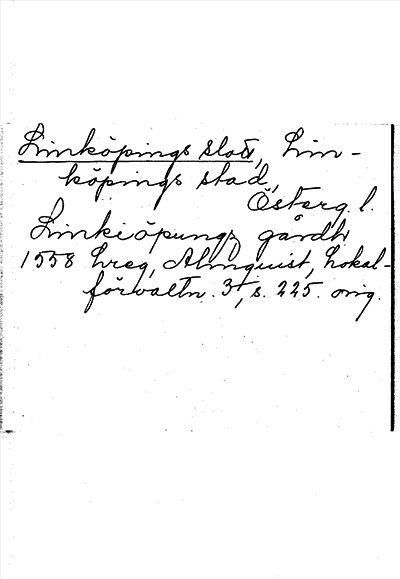 Linköpings slott, Lin-
köpings stad,
Österg. l.
Linkiöpungz gårdh
1558 hreg, Almquist, Lokal-
förvaltn. 3, s. 225. orig.